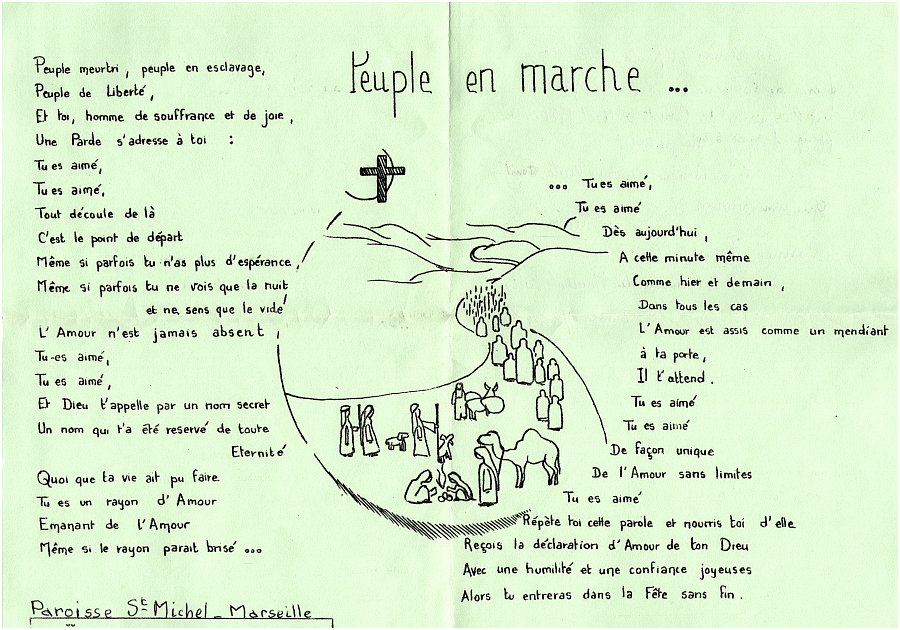 Peuple en marche ...
Peuple meurtri, peuple en esclavage,
Peuple de Liberté,
Et toi, homme de souffrance et de joie,
Une Parde s'adresse à toi :
Tu es aimé,
Tu es aimé,
Tout découle de là
C'est le point de départ
Même si parfois tu n'as plus d'espérance,
Même si parfois tu ne vois que la nuit
et ne sens que le vide
L'Amour n'est jamais absent,
Tu es aimé,
Tu es aimé,
Et Dieu t'appelle par un nom secret
Un nom qui t'a été reservé de toute
Eternité
Quoi que ta vie ait pu faire
Tu es un rayon d'Amour
Emanant de l'Amour
Même si le rayon parait brisé ...
... Tu es aimé,
Tu es aimé
Dès aujourd'hui,
A cette minute même
Comme hier et demain,
Dans tous les cas
L'Amour est assis comme un mendiant
à ta porte,
Il t'attend.
Tu es aimé
Tu es aimé
De façon unique
De l'Amour sans limites
Tu es aimé
Répète toi cette parole et nourris toi d'elle
Reçois la déclaration d'Amour de ton Dieu
Avec une humilité et une confiance joyeuses
Alors tu entreras dans la Fête sans fin.
Paroisse St Michel - Marseille